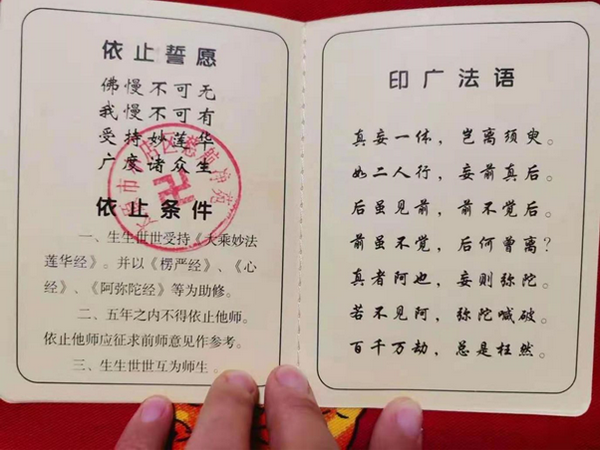 依止誓愿
佛慢不可无
我慢不可有
受持妙莲华
广度诸众生
依止条件
一、生生世世受持《大乘妙法
莲华经》。并以《楞严经》、《心
经》、《阿弥陀经》等为助修。
二、五年之内不得依止他师。
依止他师应征求前师意见作参考。
三、生生世世互为师生。
市 店区慈航净苑
印广法语
真妄一体，岂离须臾。
如二人行，妄前真后。
后虽见前，前不觉后。
前虽不觉，后何曾离？
真者阿也，妄则弥陀。
若不见阿，弥陀喊破。
百千万劫，总是枉然。